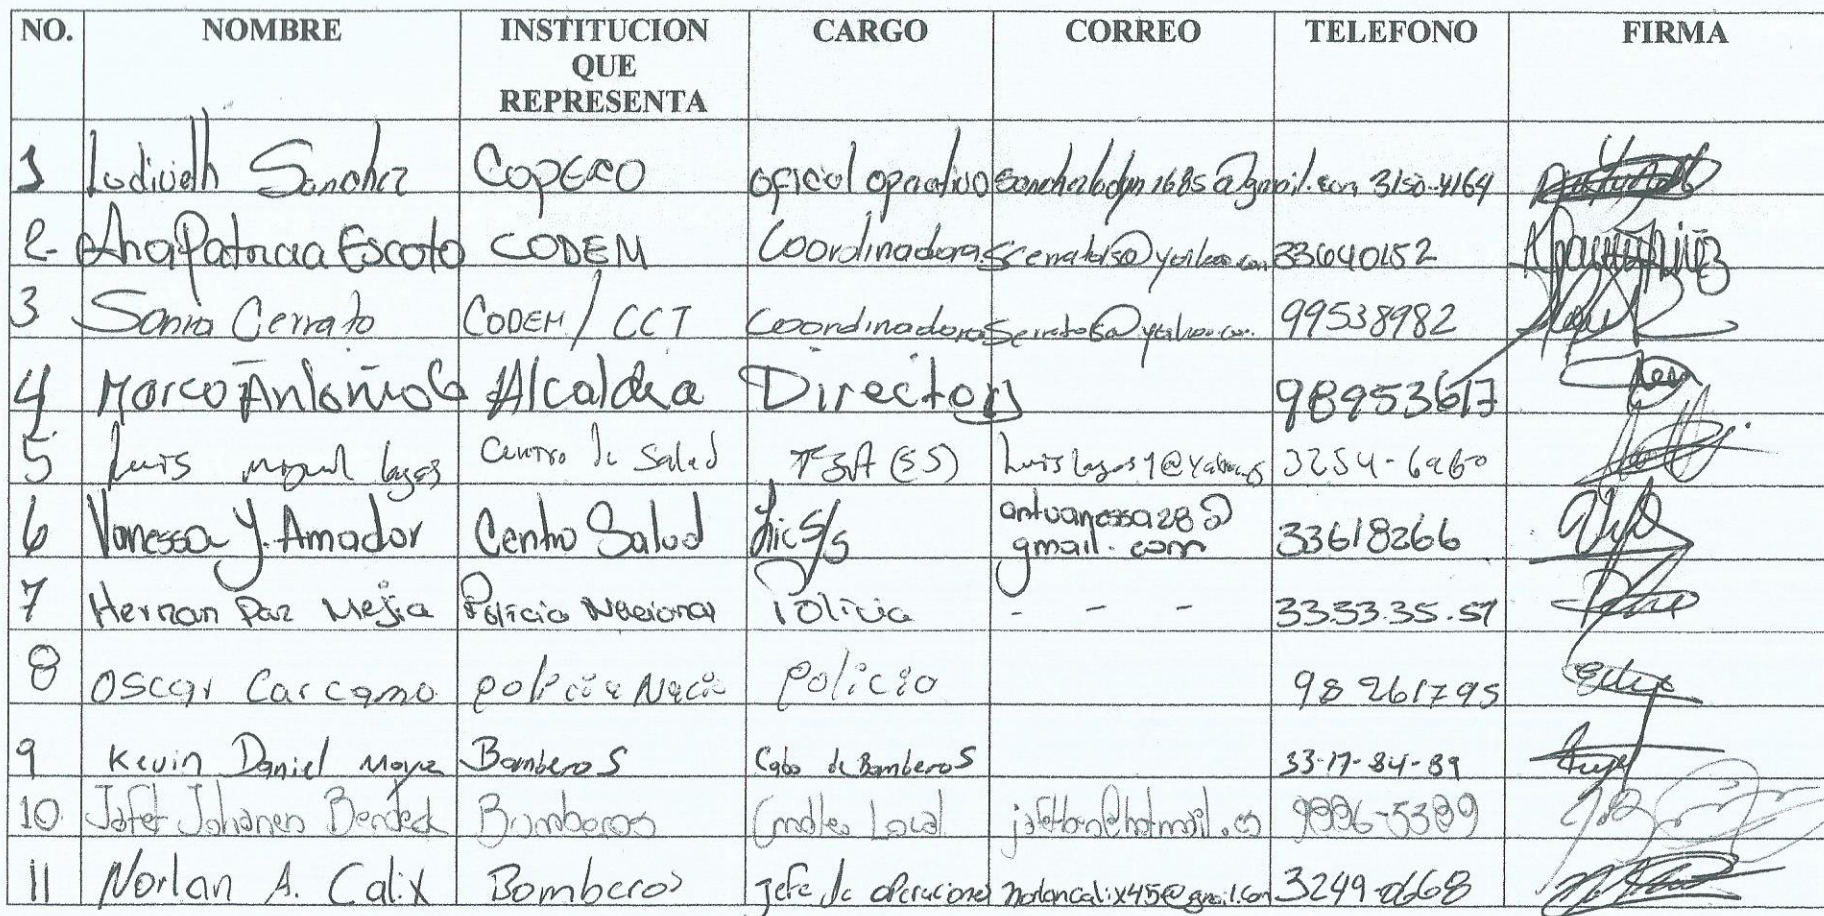 NO. NOMBRE INSTITUCION QUE REPRESENTA CARGO CORREO TELEFONO FIRMA
1 Ludivelh Sanchez COPECO oficial operativo 3150-4164
2- Ana Patricia Escoto CODEM Coordinadora 33640152
3 Sonia Cerrato CODEM / CCT Coordinadora 99538982
4 Marco Antonio Alcaldia Director 98953617
5 Luis Miguel lagos Centro de Salud TSA (SS) 3254-6960
6 Vanessa Y. Amador Centro Salud Lic S/S antvanessa28@
gmail.com 33618266
7 Hernan Paz Mejia Policia Nacional Policia - - - 33.33.35.57
8 Oscar Carcamo policia Nacio policio 98261795
9 Kevin Daniel Bomberos Cabo de Bomberos 33-17-84-89
10 Jafet Johanen Bendeck Bomberos Local 9896-5389
11 Norlan A. Calix Bomberos Jefe de operaciones norlancalix45@gmail.com 3249-0668